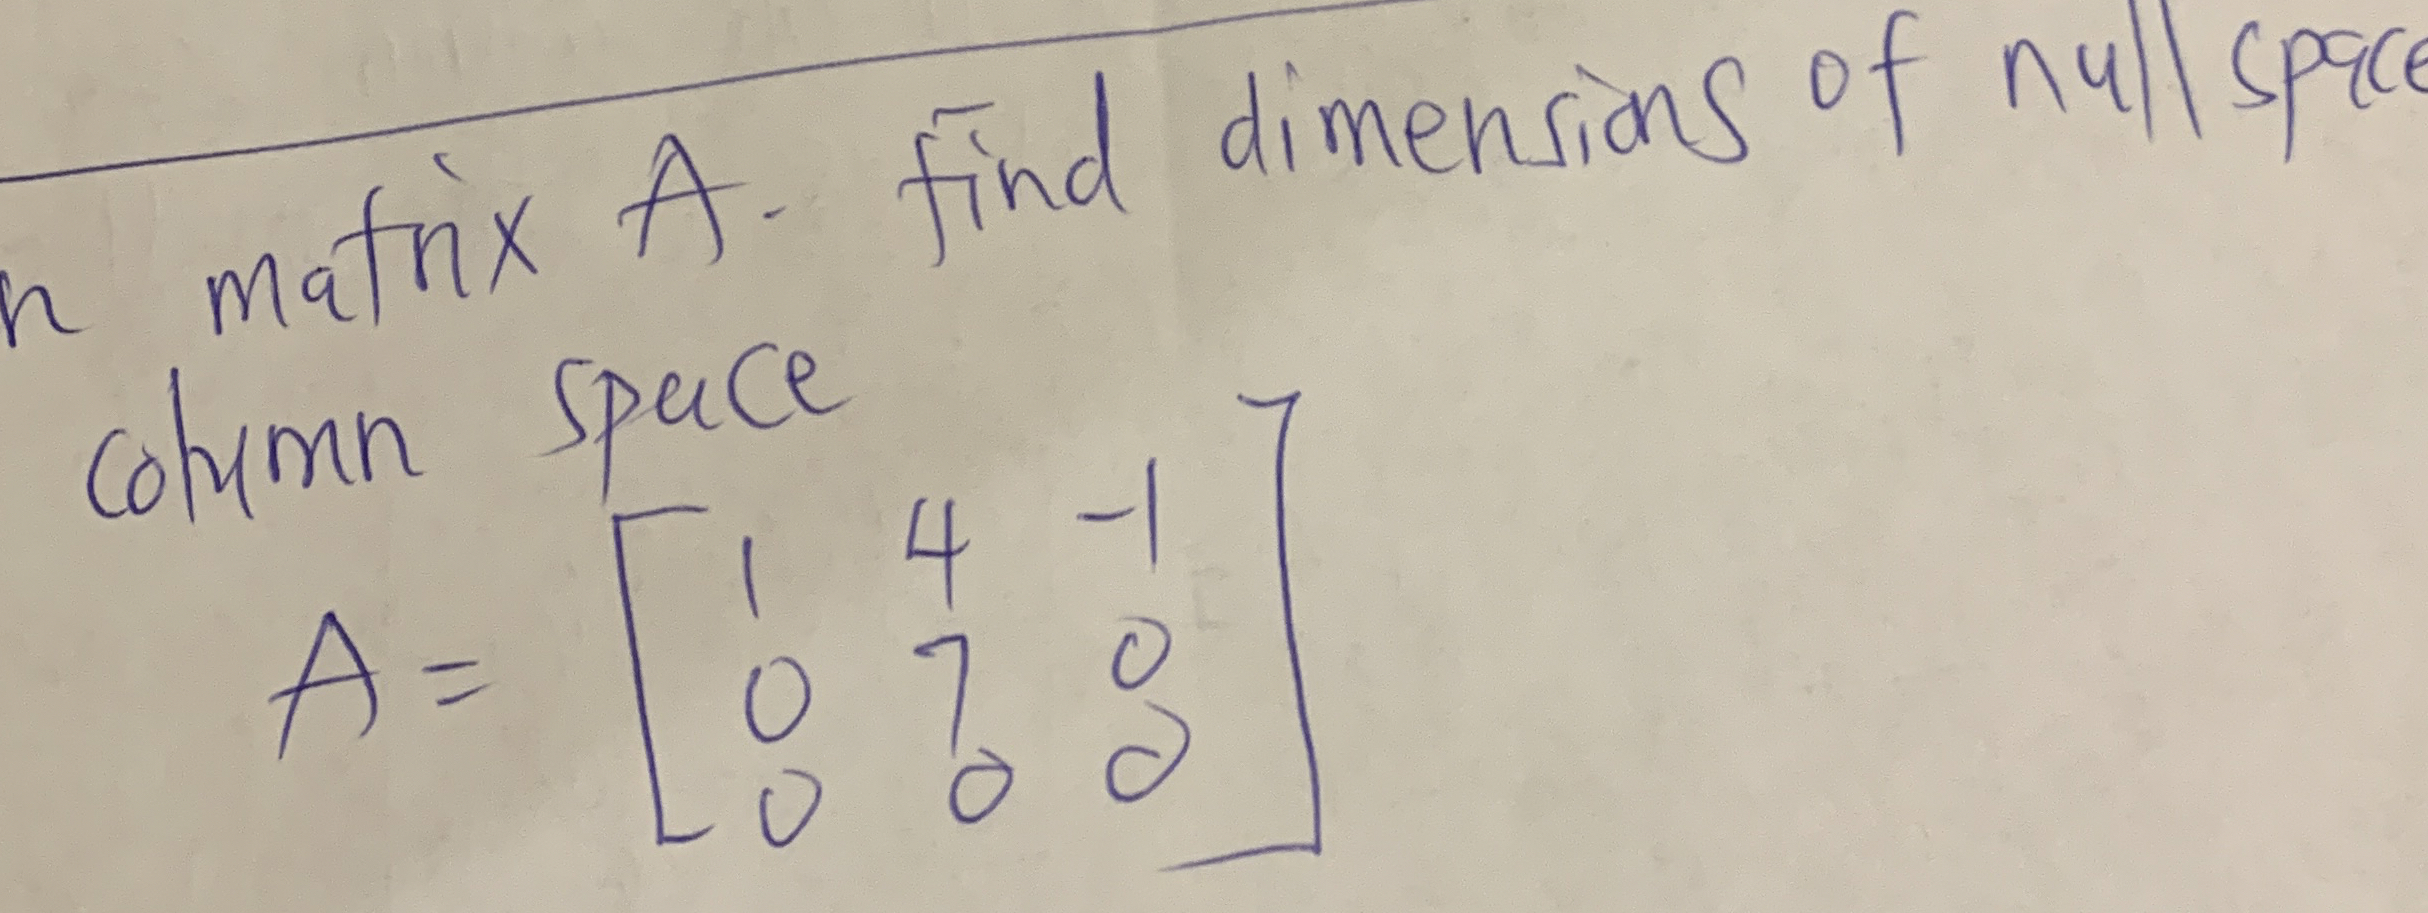 n matrix A. find dimensions of null space
column space
A = [ 1 4 -1
0 7 0
0 0 0 ]